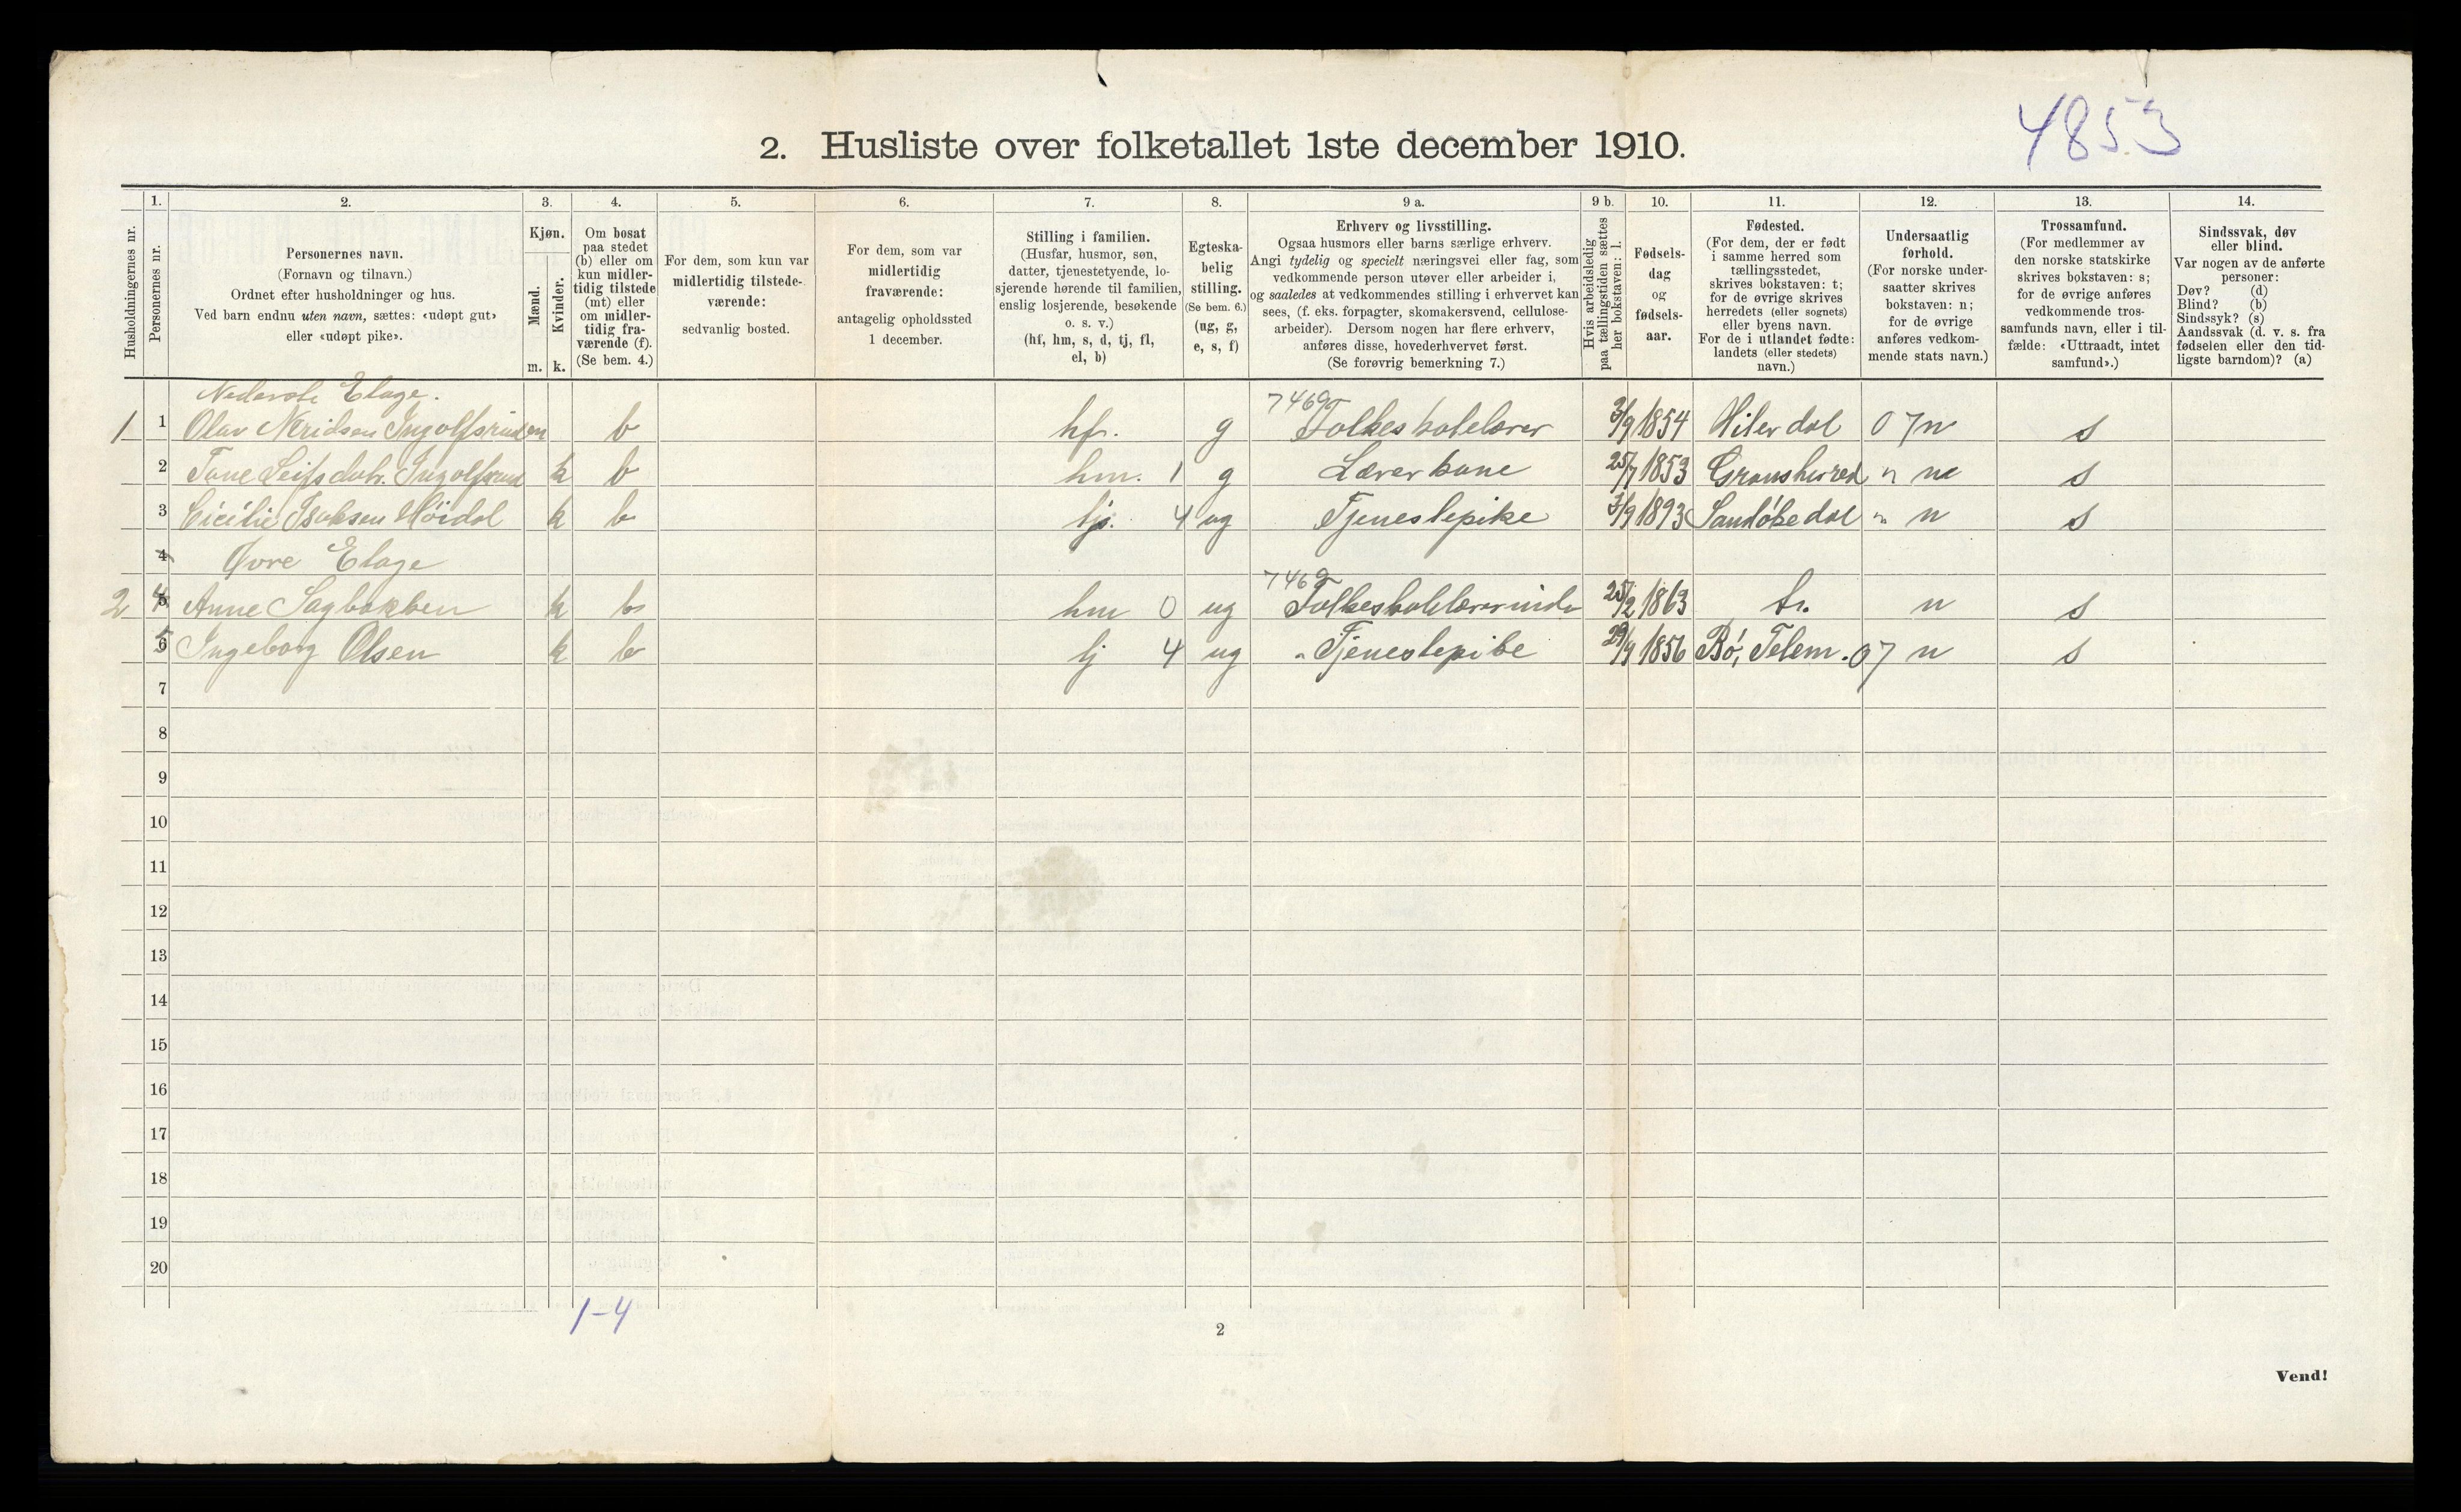 4853
2. Husliste over folketallet 1ste december 1910.
Husholdningernes nr.
1.
Personernes nr.
2.
Personernes navn.
(Fornavn og tilnavn.)
Ordnet efter husholdninger og hus.
Ved barn endnu uten navn, sættes: «udøpt gut»
eller «udøpt pike».
3.
Kjøn.
Mænd.
Kvinder.
m. k.
4.
Om bosat
paa stedet
(b) eller om
kun midler-
tidig tilstede
(mt) eller
om midler-
tidig fra-
værende (f).
(Se bem. 4.)
5.
For dem, som kun var
midlertidig tilstede-
værende:
sedvanlig bosted.
6.
For dem, som var
midlertidig
fraværende:
antagelig opholdssted
1 december.
7.
Stilling i familien.
(Husfar, husmor, søn,
datter, tjenestetyende, lo-
sjerende hørende til familien,
enslig losjerende, besøkende
o. s. v.)
(hf, hm, s, d, tj, fl,
el, b)
8.
Egteska-
belig
stilling.
(Se bem. 6.)
(ug, g,
e, s, f)
9 a.
Erhverv og livsstilling.
Ogsaa husmors eller barns særlige erhverv.
Angi tydelig og specielt næringsvei eller fag, som
vedkommende person utøver eller arbeider i,
og saaledes at vedkommendes stilling i erhvervet kan
sees, (f. eks. forpagter, skomakersvend, cellulose-
arbeider). Dersom nogen har flere erhverv,
anføres disse, hovederhvervet først.
(Se forøvrig bemerkning 7.)
9 b.
Hvis arbeidsledig
paa tællingstiden sættes
her bokstaven: l.
10.
Fødsels-
dag
og
fødsels-
aar.
11.
Fødested.
(For dem, der er født
i samme herred som
tællingsstedet,
skrives bokstaven: t;
for de øvrige skrives
herredets (eller sognets)
eller byens navn.
For de i utlandet fødte:
landets (eller stedets)
navn.)
12.
Undersaatlig
forhold.
(For norske under-
saatter skrives
bokstaven: n;
for de øvrige
anføres vedkom-
mende stats navn.)
13.
Trossamfund.
(For medlemmer av
den norske statskirke
skrives bokstaven: s;
for de øvrige anføres
vedkommende tros-
samfunds navn, eller i til-
fælde: «Uttraadt, intet
samfund».)
14.
Sindssvak, døv
eller blind.
Var nogen av de anførte
personer:
Døv? (d)
Blind? (b)
Sindssyk? (s)
Aandssvak (d. v. s. fra
fødselen eller den tid-
ligste barndom)? (a)
Nederste Etage.
7469
1 1 Olav Neridsen Ingolfsrud m b hf. g Folkeskolelærer 3/9 1854 Hiterdal 07 n s
2 Tone Leifsdatr. Ingolfsrud k b hm. 1 g Lærerkone 25/7 1853 Gransherred " n s
3 Cicilie Isaksen Höidal k b tj. 4 ug Tjenestepike 3/9 1893 Sandökedal " n s
4 Øvre Etage
7469
2 4 5 Anne Sagbakken k b hm 0 ug Folkeskolelærerinde 25/2 1863 t. n s
5 6 Ingeborg Olsen k b tj 4 ug " Tjenestepike 29/9 1856 Bö, Telem. 07 n s
7
8
9
10
11
12
13
14
15
16
17
18
19
20
1-4
2
Vend!